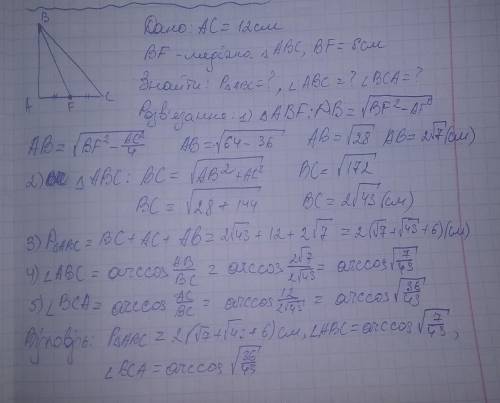 B
Дано: AC = 12см
BF - медіана △ABC, BF = 8см
A F C
Знайти: P△ABC = ?, ∠ABC = ? ∠BCA = ?
Розв'язання: 1) △ABF: AB = √(BF² - AF²)
AB = √(BF² - AC²/4) AB = √(64 - 36) AB = √28 AB = 2√7 (см)
2) △ABC: BC = √(AB² + AC²) BC = √172
BC = √(28 + 144) BC = 2√43 (см)
3) P△ABC = BC + AC + AB = 2√43 + 12 + 2√7 = 2(√7 + √43 + 6) (см)
4) ∠ABC = arccos AB/BC = arccos 2√7/2√43 = arccos √(7/43)
5) ∠BCA = arccos AC/BC = arccos 12/2√43 = arccos √(36/43)
Відповідь: P△ABC = 2(√7 + √43 + 6) см, ∠ABC = arccos √(7/43),
∠BCA = arccos √(36/43)